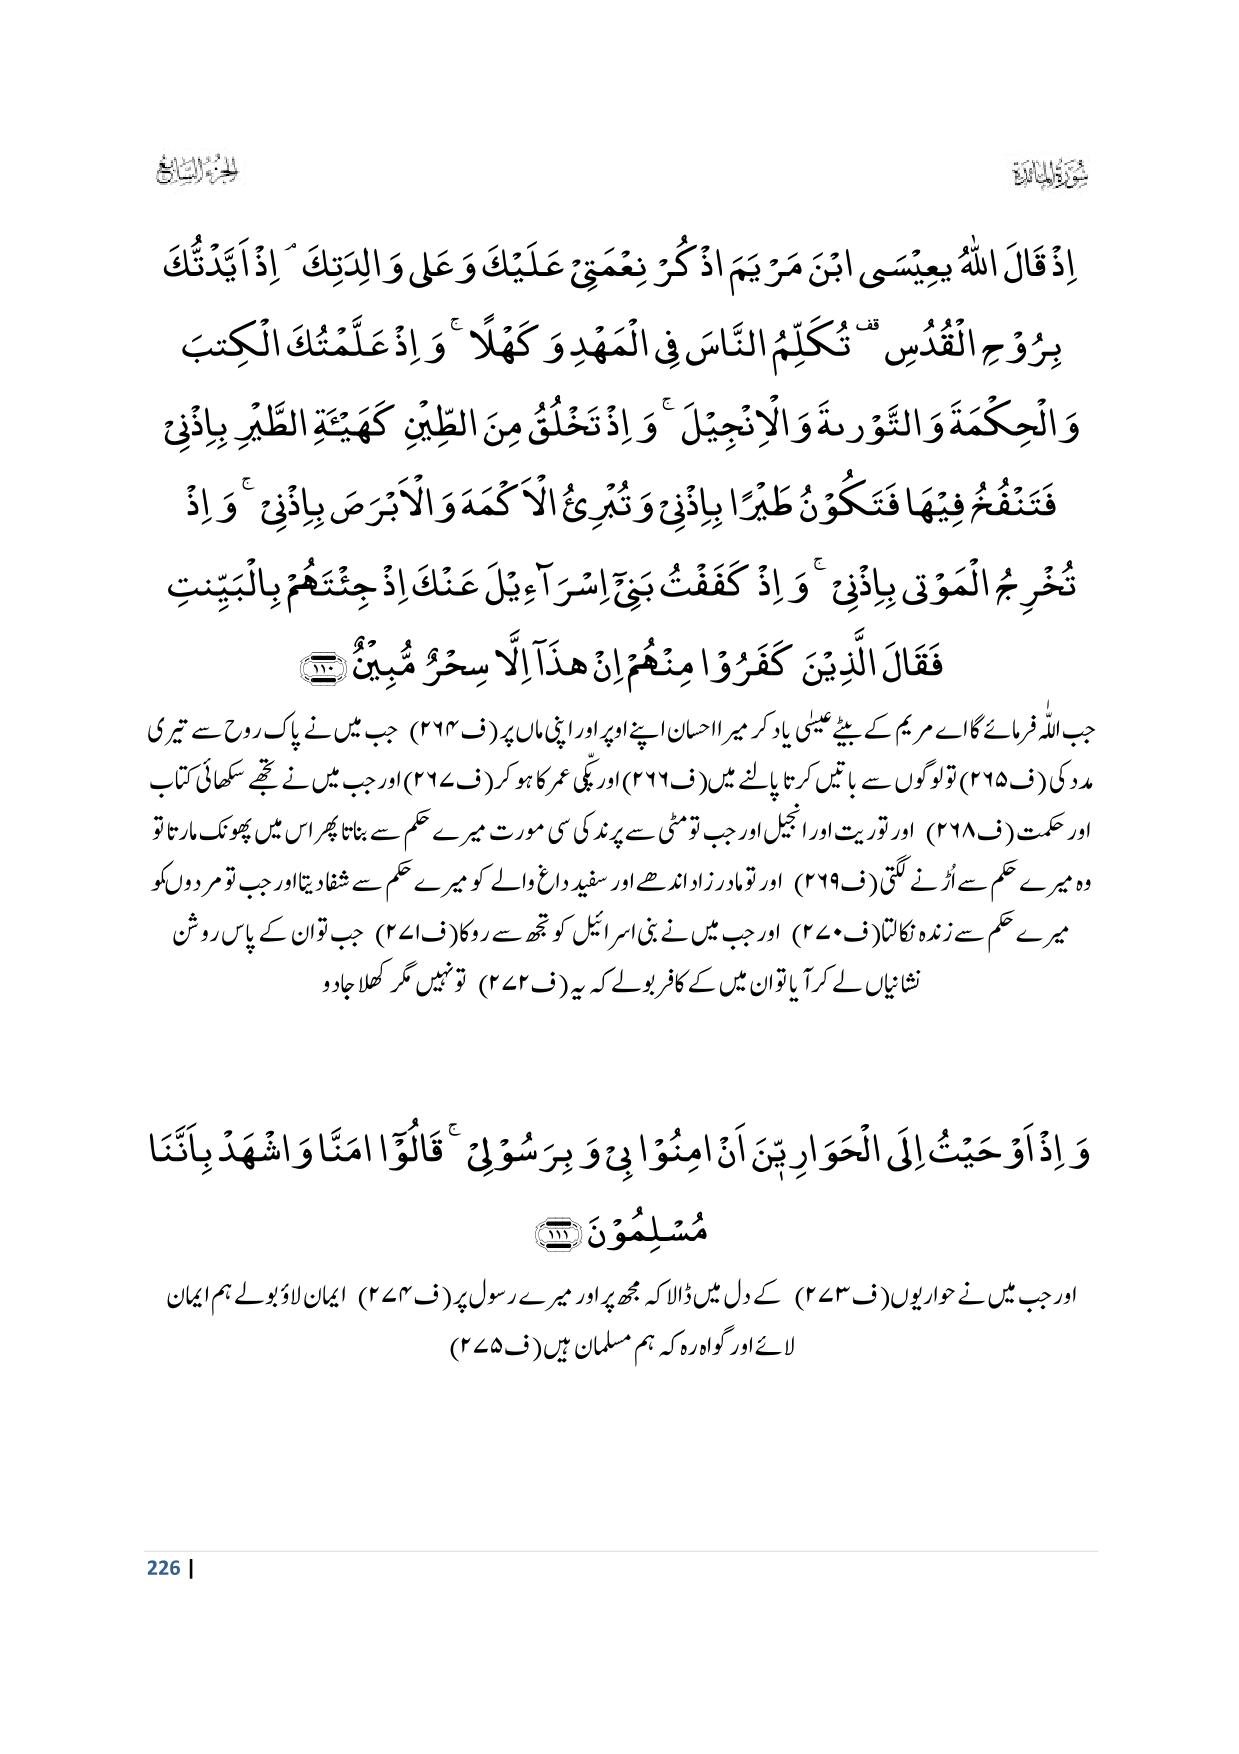 سُوْرَۃُ الْمَائِدَۃ
الجُزءُ السَّابِعُ
اِذْ قَالَ اللّٰهُ یعِیْسَی ابْنَ مَرْیَمَ اذْكُرْ نِعْمَتِیْ عَلَیْكَ وَ عَلی وَ الِدَتِكَ ۘ اِذْ اَیَّدْتُّكَ
بِرُوْحِ الْقُدُسِ ۫ تُكَلِّمُ النَّاسَ فِی الْمَهْدِ وَ كَهْلًا ۚ وَ اِذْ عَلَّمْتُكَ الْكِتبَ
وَ الْحِكْمَةَ وَ التَّوْرىةَ وَ الْاِنْجِیْلَ ۚ وَ اِذْ تَخْلُقُ مِنَ الطِّیْنِ كَهَیْـَٔةِ الطَّیْرِ بِاِذْنِیْ
فَتَنْفُخُ فِیْهَا فَتَكُوْنُ طَیْرًا بِاِذْنِیْ وَ تُبْرِئُ الْاَكْمَهَ وَ الْاَبْرَصَ بِاِذْنِیْ ۚ وَ اِذْ
تُخْرِجُ الْمَوْتی بِاِذْنِیْ ۚ وَ اِذْ كَفَفْتُ بَنِیْۤ اِسْرَآءِیْلَ عَنْكَ اِذْ جِئْتَهُمْ بِالْبَیِّنتِ
فَقَالَ الَّذِیْنَ كَفَرُوْا مِنْهُمْ اِنْ هذَاۤ اِلَّا سِحْرٌ مُّبِیْنٌ ﴿۱۱۰﴾
جب اللّٰہ فرمائے گا اے مریم کے بیٹے عیسٰی یاد کر میرا احسان اپنے اوپر اور اپنی ماں پر (ف۲۶۴) جب میں نے پاک روح سے تیری
مدد کی (ف۲۶۵) تو لوگوں سے باتیں کرتا پالنے میں(ف۲۶۶)اور پکّی عمر کا ہو کر(ف۲۶۷)اور جب میں نے تجھے سکھائی کتاب
اور حکمت (ف۲۶۸) اور توریت اور انجیل اور جب تو مٹی سے پرند کی سی مورت میرے حکم سے بناتا پھر اس میں پھونک مارتا تو
وہ میرے حکم سے اُڑنے لگتی (ف۲۶۹) اور تو مادر زاد اندھے اور سفید داغ والے کو میرے حکم سے شفا دیتا اور جب تو مردوں کو
میرے حکم سے زندہ نکالتا(ف۲۷۰) اور جب میں نے بنی اسرائیل کو تجھ سے روکا(ف۲۷۱) جب تو ان کے پاس روشن
نشانیاں لے کر آیا تو ان میں کے کافر بولے کہ یہ (ف۲۷۲) تو نہیں مگر کھلا جادو
وَ اِذْ اَوْحَیْتُ اِلَی الْحَوَارِیّٖنَ اَنْ امِنُوْا بِیْ وَ بِرَسُوْلِیْ ۚ قَالُوْۤا امَنَّا وَ اشْهَدْ بِاَنَّنَا
مُسْلِمُوْنَ ﴿۱۱۱﴾
اور جب میں نے حواریوں(ف۲۷۳) کے دل میں ڈالا کہ مجھ پر اور میرے رسول پر (ف۲۷۴) ایمان لاؤ بولے ہم ایمان
لائے اور گواہ رہ کہ ہم مسلمان ہیں(ف۲۷۵)
226 |